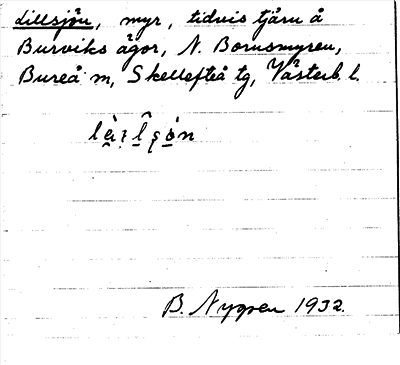 Lillsjön, myr, tidvis tjärn å
Burviks ägor, N. Borusmyren,
Bureå m, Skellefteå tg, Västerb. l.
B. Nygren 1932.